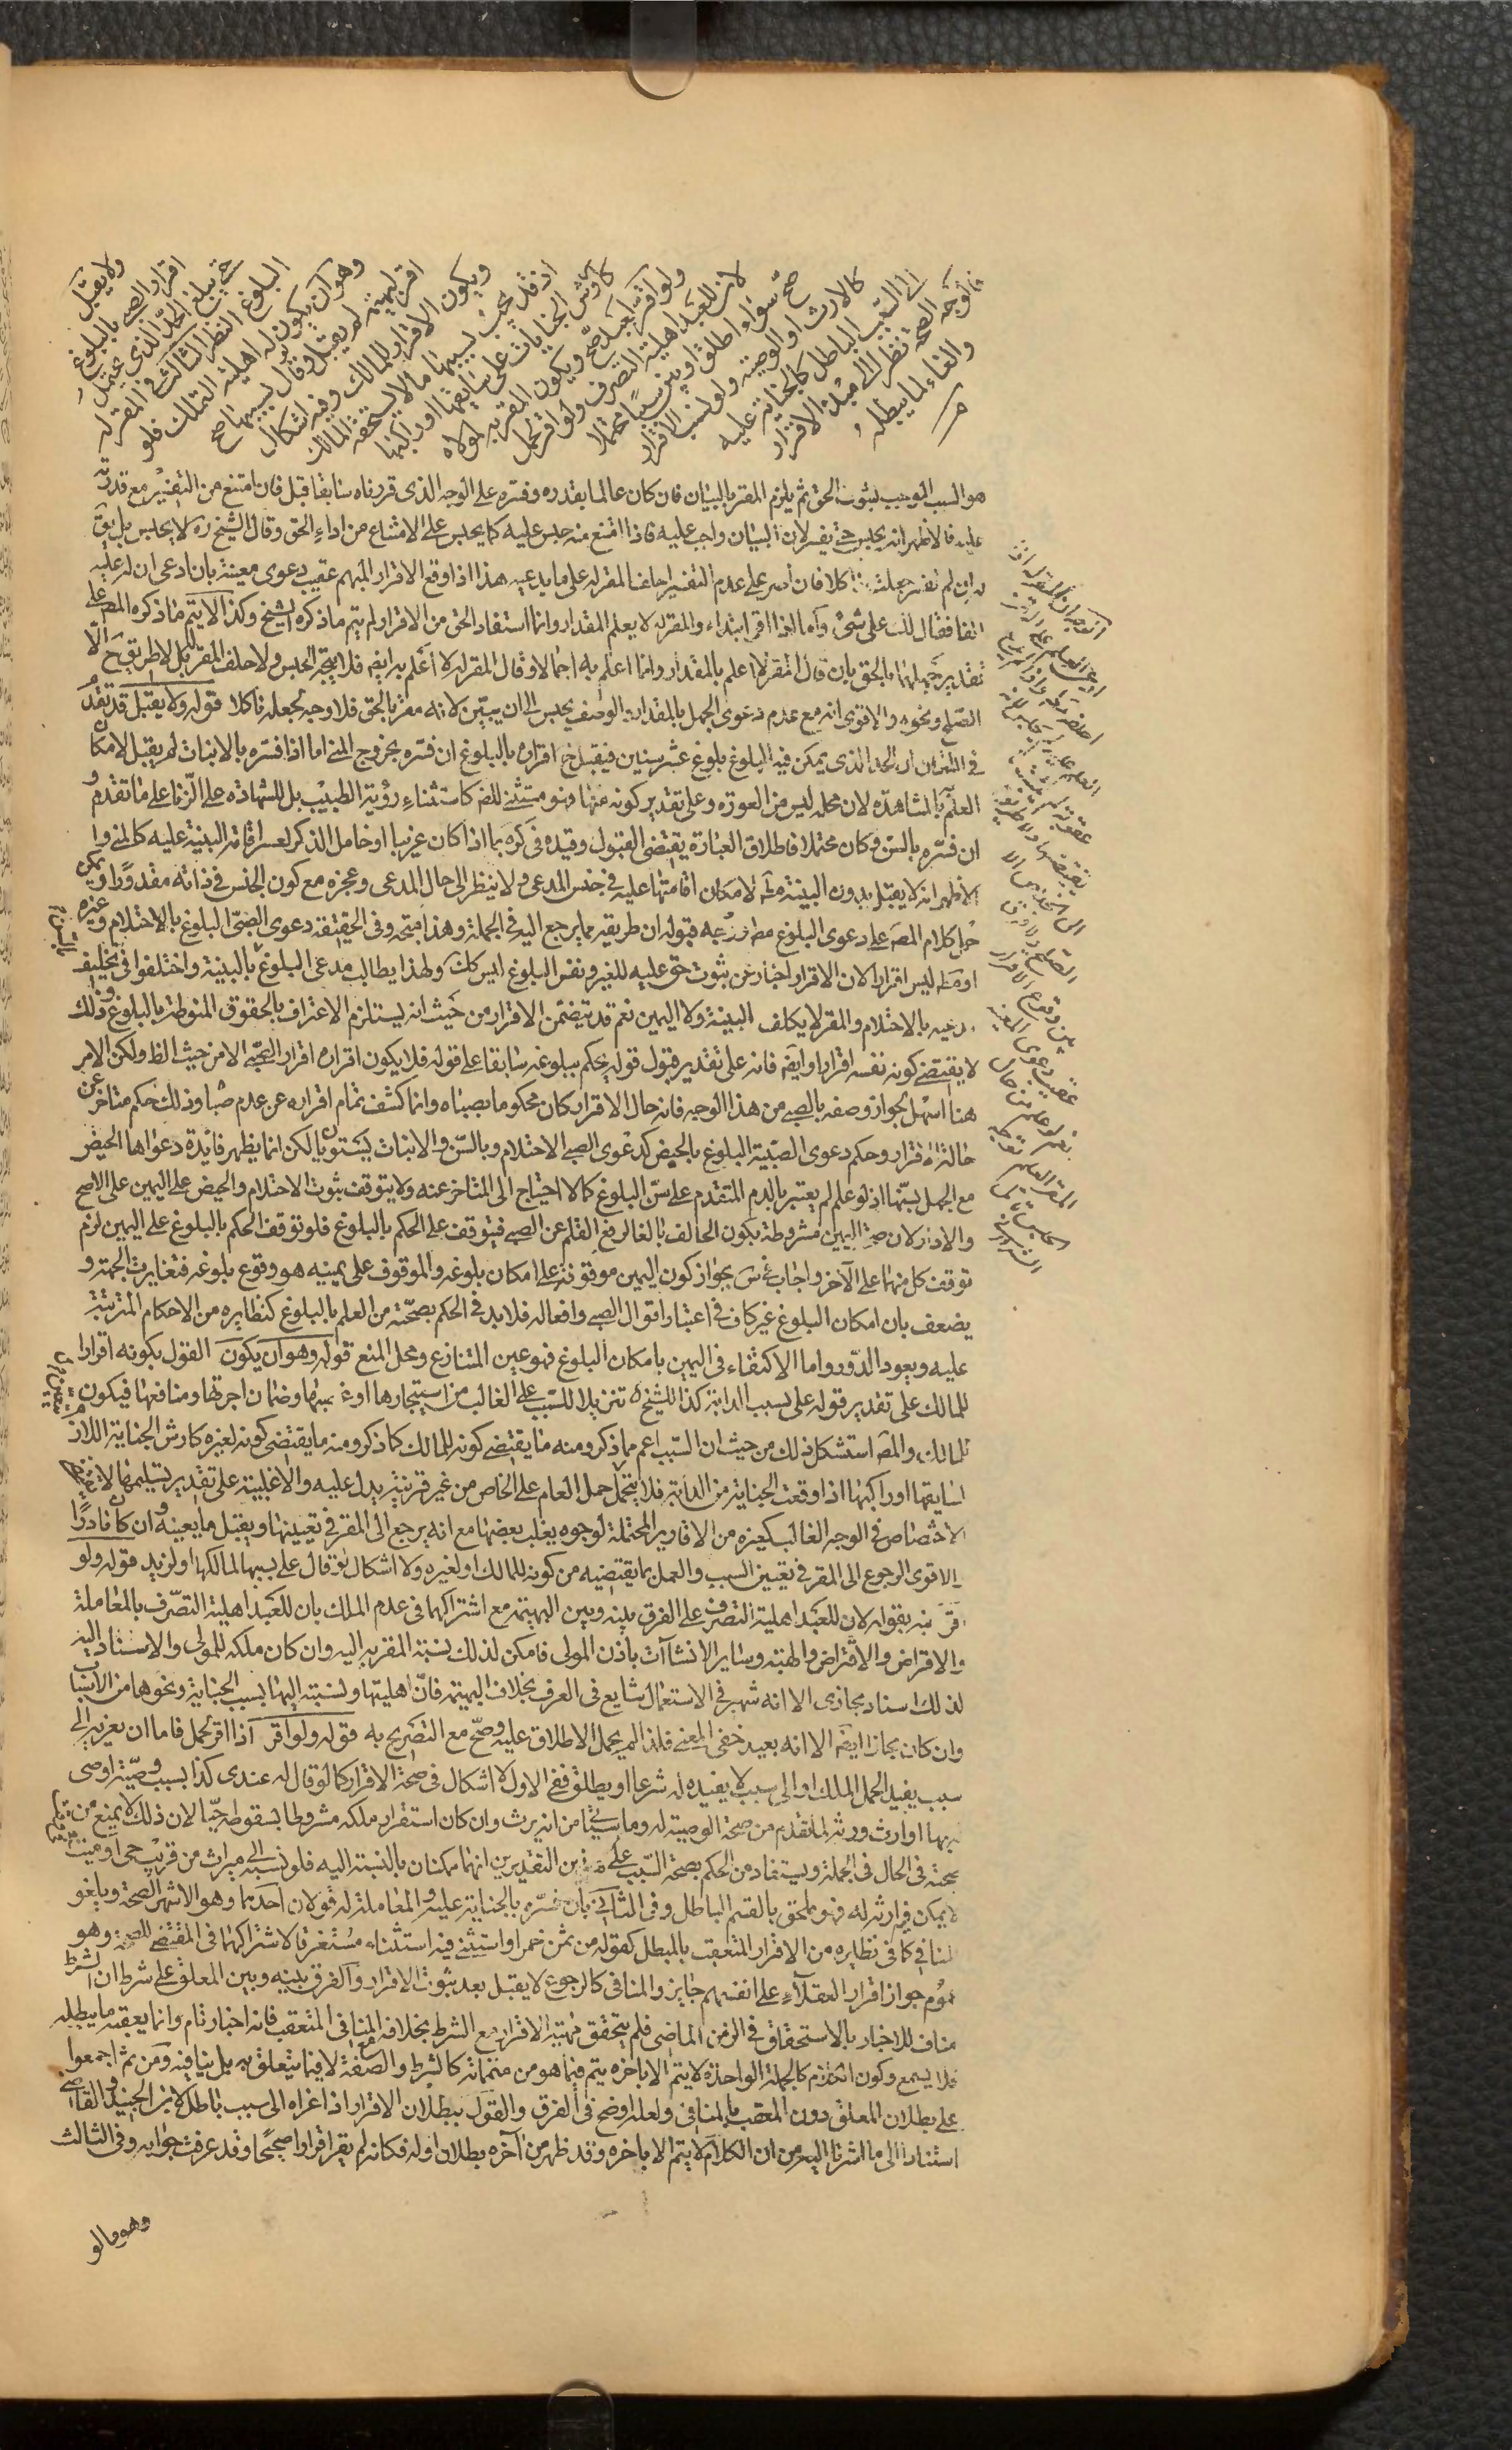 ولا يقبل
اقرار الصبي بالبلوغ
حتى يبلغ الحد الذي يحتمل
البلوغ النظر الثالث في المقر له
وهو ان يكون له اهلية التملك فلو
اقر لبهيمة لم يقبل ولو قال بسببها صح
ويكون الاقرار للمالك وفيه اشكال
اذ قد يجب بسببها ما لا يستحقه المالك
كأرش الجنايات على سايقها او راكبها
ولو اقر لعبد صح ويكون المقر به لمولاه
لان للعبد اهلية التصرف ولو اقر لحمل
صح سواء اطلق او بين سببا محتملا
كالارث او الوصية ولو نسب الاقرار
الى السبب الباطل كالجناية عليه
فالوجه الصحة نظرا الى مبدء الاقرار
والغاء لما يبطله
هو السبب الموجب لثبوت الحق ثم يلزم المقر بالبيان فان كان عالما بقدره وفسره على الوجه الذي قررناه سابقا قبل فان امتنع من التفسير مع قدرته
عليه فالاظهر انه يحبس حتى يفسر لان البيان واجب عليه فاذا امتنع منه حبس عليه كما يحبس على الامتناع من اداء الحق وقال الشيخ ره لا يحبس بل يق
له ان لم تفسر جعلت ناكلا فان اصر على عدم التفسير احلف المقر له على ما يدعيه هذا اذا وقع الاقرار المبهم عقيب دعوى معينة بان ادعى ان له عليه
الفا فقال لك على شئ واما اذا اقر ابتداء والمقر له لا يعلم المقدار وانما استفاد الحق من الاقرار لم يتم ما ذكره الشيخ وكذا لا يتم ما ذكره المص على
تقدير جهلهما بالحق بان قال المقر لا اعلم بالمقدار وانما اعلم به اجمالا وقال المقر له لا اعلم به ايضا فلا يتجه الحبس ولا حلف المقر له بل لا طريق ح الا
الصلح ونحوه والاقوى انه مع عدم دعوى الجهل بالمقدار والوصف يحبس الى ان يبين لانه مقر بالحق فلا وجه لجعله ناكلا قوله ولا يقبل قد تقدم
في اللقطة ان الحد الذي يمكن فيه البلوغ بلوغ عشر سنين فيقبل ح اقراره بالبلوغ ان فسره بخروج المني اما اذا فسره بالانبات لم يقبل لامكان
العلم بالمشاهدة لان محله ليس من العورة وعلى تقدير كونه منها فهو مستثنى للضرورة كاستثناء رؤية الطبيب بل للشهادة على الزنا على ما تقدم و
ان فسره بالسن وكان محتملا فاطلاق العبارة يقتضي القبول وقيده في كره بما اذا كان غريبا او خامل الذكر لعسر اقامة البينة عليه كالمني وا
الاظهر انه لا يقبل بدون البينة مط لامكان اقامتها عليه في جنس المدعي ولا ينظر الى حال المدعي وعجزه مع كون الجنس في ذاته مقدورا ويمكن
حمل كلام المص على دعوى البلوغ مط ووجه قبوله ان طريقه مما يرجع اليه في الجملة وهذا متجه وفي الحقيقة دعوى الصبي البلوغ بالاحتلام وغيره
او مط ليس اقرارا لان الاقرار اخبار عن ثبوت حق عليه للغير ونفس البلوغ ليس كك ولهذا يطالب مدعي البلوغ بالبينة واختلفوا في تحليف
مدعيه بالاحتلام والمقر لا يكلف البينة ولا اليمين نعم قد يتضمن الاقرار من حيث انه يستلزم الاعتراف بالحقوق المنوطة بالبلوغ وذلك
لا يقتضي كونه نفسه اقرارا وايضا فانه على تقدير قبول قوله يحكم ببلوغه سابقا على قوله فلا يكون اقراره اقرار الصبي الا من حيث الظ ولكن الامر
هنا اسهل لجواز وصفه بالصبي من هذا الوجه فانه حال الاقرار كان محكوما بصباه وانما كشف تمام اقراره عن عدم صباه وذلك حكم متاخر عن
حالة الاقرار وحكم دعوى الصبية البلوغ بالحيض كدعوى الصبي الاحتلام وبالسن والانبات يستويان لكن انما يظهر فايدة دعواها الحيض
مع الجهل بسنها اذ لو علم لم يعتبر بالدم المتقدم على سن البلوغ كما لا احتياج الى المتاخر عنه ولا يتوقف ثبوت الاحتلام والحيض على اليمين على الاصح
والا دار لان صحة اليمين مشروطة بكون الحالف بالغا لرفع القلم عن الصبي فيتوقف على الحكم بالبلوغ فلو توقف الحكم بالبلوغ على اليمين لزم
توقف كل منهما على الآخر واجاب بجواز كون اليمين موقوفة على امكان بلوغه والموقوف على يمينه هو وقوع بلوغه فتغايرت الجهة و
يضعف بان امكان البلوغ غير كاف في اعتبار اقوال الصبي وافعاله فلا بد في الحكم بصحته من العلم بالبلوغ كنظايره من الاحكام المترتبة
عليه ويعود الدور واما الاكتفاء في اليمين بامكان البلوغ فهو عين المتنازع ومحل المنع قوله وهو ان يكون القول بكونه اقرارا
للمالك على تقدير قوله على بسبب الدابة كذا للشيخ ره تنزيلا للسبب على الغالب من استيجارها او غصبها وضمان اجرتها ومنافعها فيكون
للمالك والمص استشكل ذلك من حيث ان السبب اعم مما ذكر ومنه ما يقتضي كونه للمالك كما ذكر ومنه ما يقتضي كونه لغيره كارش الجناية اللازم
لسايقها او راكبها اذا وقعت الجناية من الدابة فلا يتحمل حمل العام على الخاص من غير قرينة يدل عليه والاغلبية على تقدير تسليمها لا تقتضي
الاختصاص في الوجه الغالب كغيره من الاقارير المحتملة لوجوه يغلب بعضها مع انه يرجع الى المقر في تعيينها ويقبل ما يعينه وان كان نادرا
والاقوى الرجوع الى المقر في تعيين السبب والعمل بما يقتضيه من كونه للمالك او لغيره ولا اشكال لو قال على بسببها لمالكها او لزيد قوله ولو
اقر نبه بقوله لان للعبد اهلية التصرف على الفرق بينه وبين البهيمة مع اشتراكهما في عدم الملك بان للعبد اهلية التصرف بالمعاملة
والاقراض والاقتراض والهبة وساير الانشاآت باذن المولى فامكن لذلك نسبة المقر به اليه وان كان ملكه للمولى والاسناد اليه
لذلك اسناد مجازي الا انه شهير في الاستعمال شايع في العرف بخلاف البهيمة فان اهليتها ونسبته اليها بسبب الجناية ونحوها من الاسباب
وان كان مجازا ايضا الا انه بعيد خفي المعنى فلذا لم يحمل الاطلاق عليه وصح مع التصريح به قوله ولو اقر اذا اقر لحمل فاما ان يعزيه الى
سبب يفيد الحمل الملك او الى سبب لا يفيده له شرعا او يطلق ففي الاول لا اشكال في صحة الاقرار كما لو قال له عندي كذا بسبب وصية اوصى
له بها او ارث ورثه لما تقدم من صحة الوصية له وما سياتي من انه يرث وان كان استقرار ملكه مشروطا بسقوطه حيا لان ذلك لا يمنع من
صحته في الحال في الجملة ويستفاد من الحكم بصحة السبب على هذين التقديرين انهما ممكنان بالنسبة اليه فلو نسبه الى ميراث من قريب حي او ميت
لا يمكن فيه ارثه له فهو ملحق بالقسم الباطل وفي الثاني بان فسره بالجناية عليه والمعاملة له قولان احدهما وهو الاشهر الصحة ويلغو
المنافي كما في نظايره من الاقرار المتعقب بالمبطل كقوله من ثمن خمر او استثنى فيه استثناء مستغرقا لاشتراكهما في المقتضي للصحة وهو
عموم جواز اقرار العقلاء على انفسهم جايز والمنافي كالرجوع لا يقبل بعد ثبوت الاقرار والفرق بينه وبين المعلق على شرط ان الشرط
مناف للاخبار بالاستحقاق في الزمن الماضي فلم يتحقق مهية الاقرار مع الشرط بخلافه المنافي المتعقب فانه اخبار تام وانما يعقبه ما يبطله
فلا يسمع وكون الكلام كالجملة الواحدة لا يتم الا باخره يتم فيما هو من متمماته كالشرط والصفة لا فيما يتعلق به بل ينافيه ومن ثم اجمعوا
على بطلان المعلق دون المعقب بالمنافي ولعله اوضح في الفرق والقول ببطلان الاقرار اذا عزاه الى سبب باطل لابن الجنيد والقاضي
استنادا الى ما اشرنا اليه من ان الكلام لا يتم الا باخره وقد ظهر من آخره بطلان اوله فكانه لم يقر اقرارا صحيحا وقد عرفت جوابه وفي الثالث
وهو ما لو